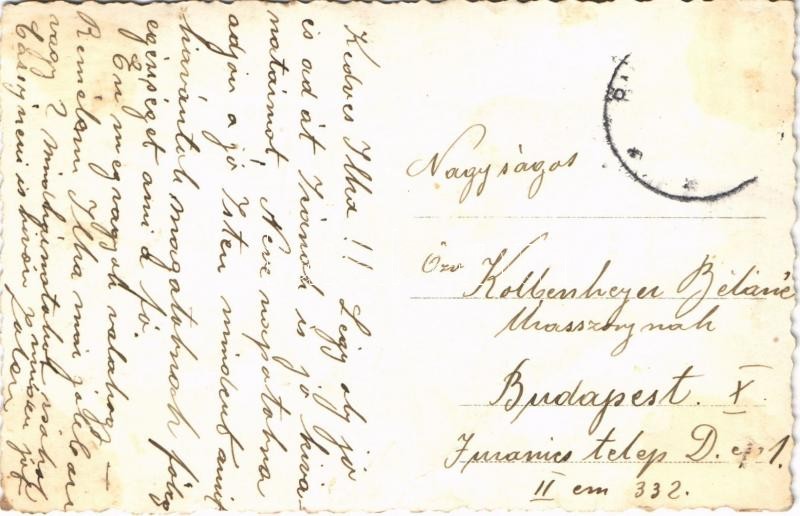 Kedves Ilka!! Légy oly jó
és ad át Irénnek is jó kiva-
natáimot Neve napotokra
adjon a jó Isten mindent amit
kivántok magatoknak főleg
egésséget ami a fő.
Én megvagyok valahogy –
Remélem Ilka már jobban
vagy
is
Nagyságos
Özv Kolbenheyer Béláné
Urasszonynak
Budapest. X.
Juranics telep D. ép 1.
II em 332.